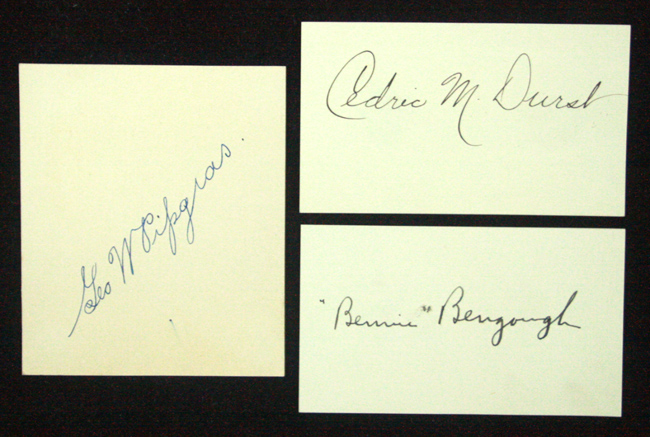 Geo W Pipgras.
Cedric M. Durst
"Bennie" Bengough